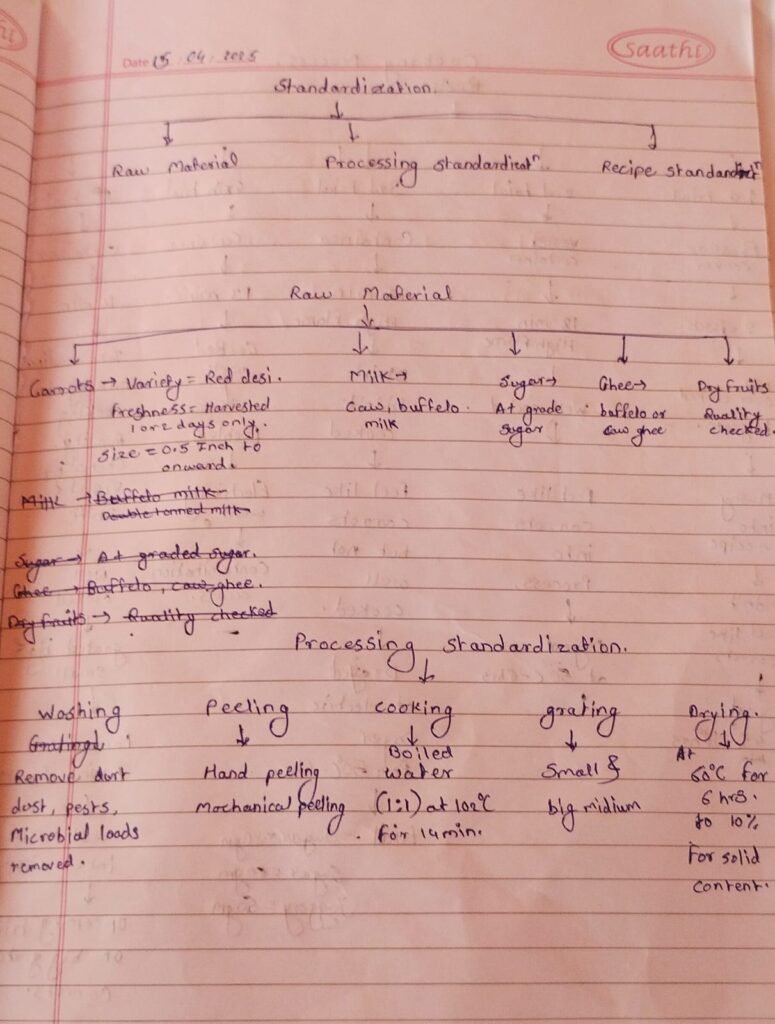 Saathi
Date 15 04 2025
Standardization.
Raw Material Processing standardizatⁿ. Recipe standardizatⁿ
Raw Material
Carrots → Variety = Red desi. Milk → Sugar → Ghee → Dry fruits
Freshness = Harvested Caw, buffelo. A+ grade buffelo or Quality
1 or 2 days only. milk sugar caw ghee checked.
Size = 0.5 Inch to
onward.
Milk → Buffelo milk
Double tonned milk
Sugar → A+ graded sugar.
Ghee → Buffelo, caw ghee.
Dry fruits → Quality checked
Processing standardization.
Washing Peeling cooking grating Drying.
Grating Boiled At
Remove durt Hand peeling water Small & 60°C for
dust, pests, Mechanical peeling (1:1) at 102°C big midium 6 hrs.
Microbial loads for 14 min. to 10%
removed. For solid
content.